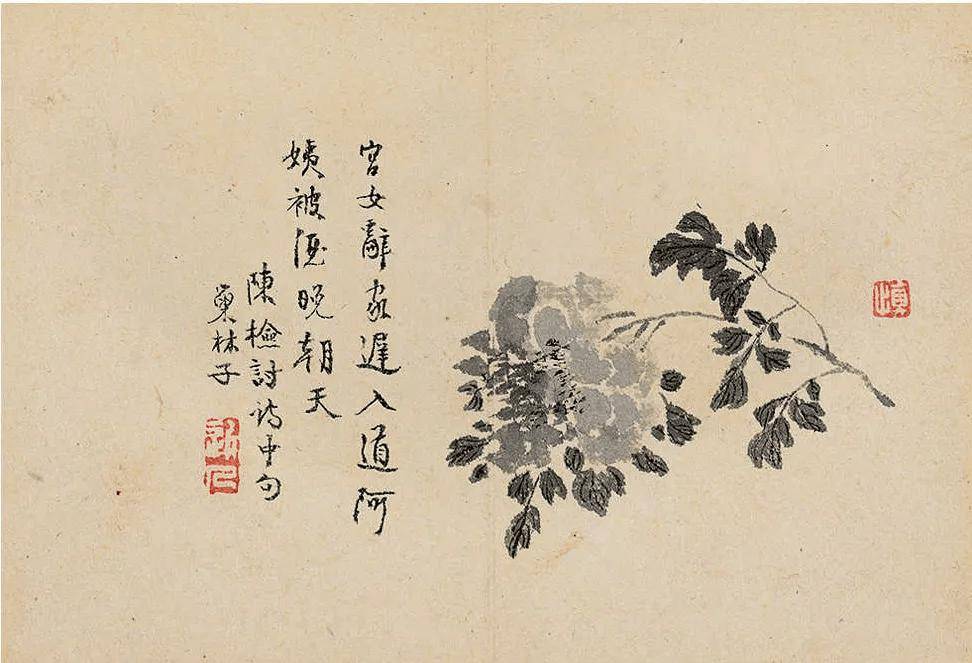 宮女辭家遲入道阿
姨被酒晚朝天
陳檢討詩中句
巢林子